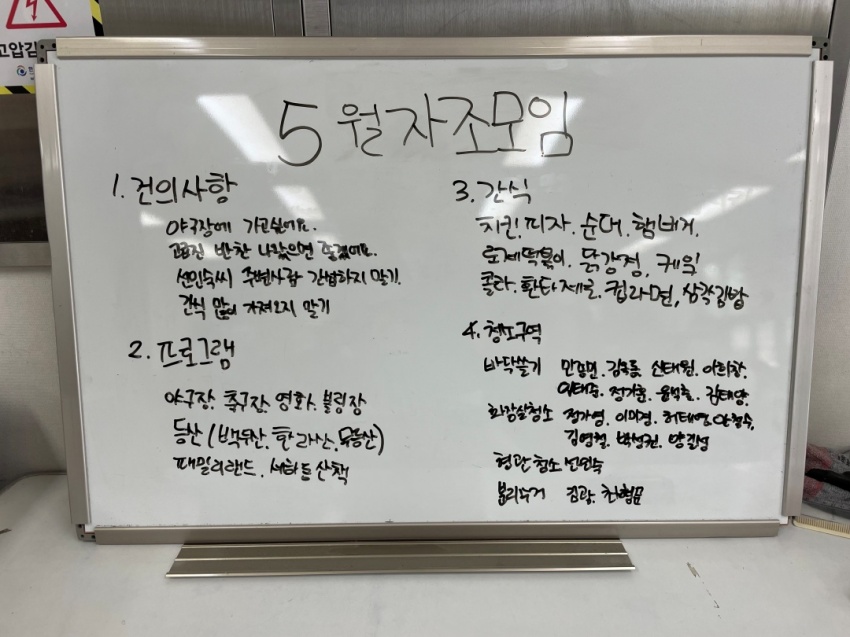 고압감
5월자조모임
1. 건의사항
야구장에 가고싶어요.
반찬 나왔으면 좋겠어요.
선민숙씨 주변사람 간섭하지 말기.
간식 많이 가져오지 말기
2. 프로그램
야구장. 축구장. 영화. 볼링장
등산 (백무산, 한라산, 무등산)
패밀리랜드. 산책
3. 간식
치킨. 피자. 순대. 햄버거.
로제떡볶이. 닭강정, 케익
콜라. 환타제로. 컵라면, 삼각김밥
4. 청소구역
바닥쓸기 신태원. 이희창.
김태양.
화장실청소 정가영. 이미경. 허태영.
김영철. 박성권.
현관청소
분리수거